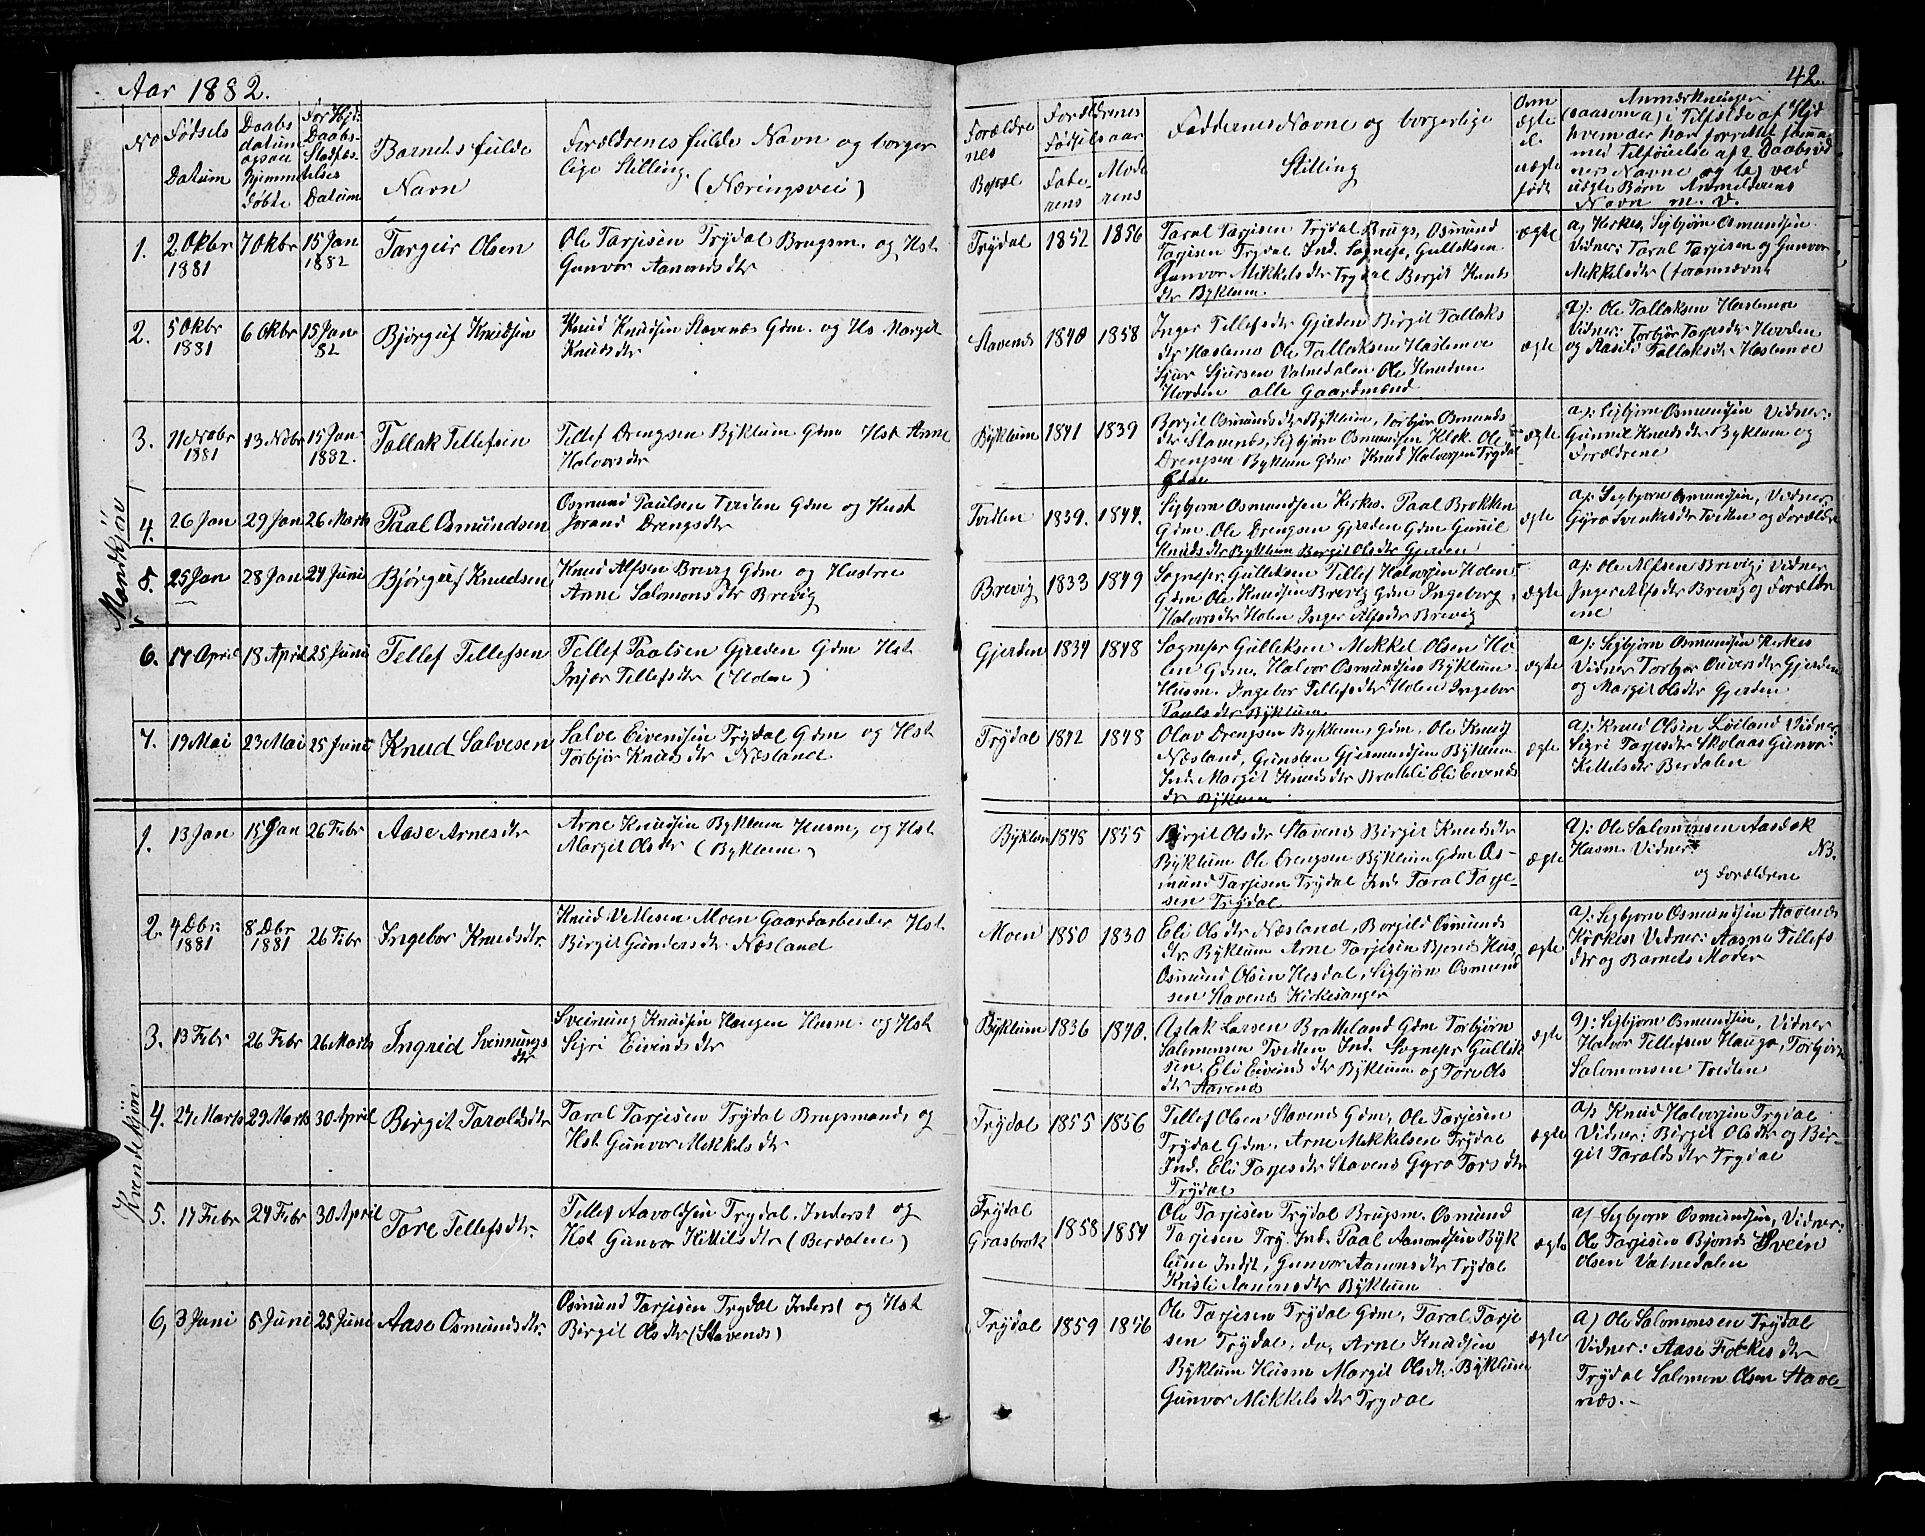 Aar 1882.
42.
No
Fødsels
Datum
Daabs
datum
ogsaa
hjemme
døbte
For Hj:
Daabs
Stadfæs-
telses
Datum
Barnets fulde
Navn
Forældrenes fulde Navn og borger
lige Stilling. (Næringsvei)
Foræld re
nes
Bopæl
Forældrenes
Fødselsaar
Fade-
rens
Mode
rens
Faddernes Navne og borgerlige
Stilling
Om
ægte
el.
uægte
født
Anmærkninger
(saasom a) i Tilfælde af Hjd
hvem der har forrettet samme
med Tilføielse af 2 Daabsvid
ners Navne og b) ved
uægte Børn Anmelderens
Navn m. v.
Mandkjøn
1.
2 Okbr
1881
7 Okbr
15 Jan
1882
Targeir Olsen
Ole Tarjesen Trydal Brugsm. og Hst.
Gunvor Aanondsdtr
Trydal
1852
1856
Taral Tarjesen Trydal Brugs, Osmund
Tarjesen Trydal Ind. Sognepr. Gulleksen
Gunvor Mikkelsdtr Trydal Birgit Knuds
dtr Byklum.
ægte
a) Kirkes. Sigbjørn Osmundsen
Vidner: Taral Tarjesen og Gunvor
Mekkelsdtr (forannævnt
2.
5 Okbr
1881
6 Okbr
15 Jan
82
Bjørguf Knudsen
Knud Knudsen Stavenæs Gdm. og Hs. Margit
Knudsdtr
Stavenes
1840
1858
Inger Tellefsdtr Gjerden Birgit Tallaks
dtr Haslemo Ole Tallaksen Haslemoe
Sjur Sjursen Vatnedalen Ole Knudsen
Horden alle Gaardmænd
ægte
a): Ole Tallaksen Haslemoe
Vidner: Torbjør Tarjesdtr Horden
og Aasild Tallaksdtr Haslemoe
3.
11 Nobr
1881
13 Nobr
15 Jan
1882.
Tallak Tellefsen
Tellef Drengsen Byklum Gdm Hst. Anne
Halvorsdtr
Byklum
1841
1839
Borgil Osmundsdtr Byklum, Torbjør Osmunds
dtr Stavenes, Sigbjørn Osmundsen Klok. Ole
Drengsen Byklum Gdm Knud Halvorsen Trydal
Gdm
ægte
a): Sigbjørn Osmundsen Vidner:
Gunnil Knudsdtr Byklum og
Forældrene
4.
26 Jan
29 Jan
26 Marts
Paal Osmundsen
Osmund Paulsen Tveiten Gdm og Hust
Jorand Drengsdtr
Tvitten
1839.
1844.
Sigbjørn Osmundsen Kirkes. Paal Brokken
Gdm. Ole Drengsen Gjerden Gdm Gunnil
Knudsdtr Byklum Birgit Olsdtr Gjerden
ægte
a): Sigbjørn Osmundsen, Vidner,
Gyro Svenkesdtr Tvitten og Forældre
5.
25 Jan
28 Jan
24 Juni
Bjørguf Knudsen
Knud Alfsen Brevig Gdm og Hustru
Anne Salomonsdtr Brevig
Brevig
1833
1849
Sognepr. Gulleksen Tellef Halvorsen Holen
Gdm Ole Knudsen Brevig Gdm Ingeborg
Halvorsdtr Holen Inger Alfsdtr Brevig
ægte
a): Ole Alfsen Brevig; Vidner
Inger Alfsdtr Brevig og Forældre
ene
6.
17 April
18 April
25 Juni
Tellef Tellefsen
Tellef Paalsen Gjerden Gdm Hst
Injær Tellefsdtr (Holen)
Gjerden
1834
1848
Sognepr Gulleksen Mekkel Olsen Ho
len Gdm. Halvor Osmundsen Byklum
Husm. Ingebor Tellefsdtr Holen Ingebor
Paulsdtr Byklum
ægte
a): Sigbjørn Osmundsen Kirkes
Vidner Torbør Eivensdtr Gjerden
og Margit Olsdtr Gjerden
7.
19 Mai
23 Mai
25 Juni
Knud Salvesen
Salve Eivendsen Trydal Gdm og Hst
Torbjør Knudsdtr Næsland
Trydal
1842
1848
Olav Drengsen Byklum, Gdm, Ole Knuds
Næsland, Gunsten Gjermundsen Byklum
Ind. Margit Knudsdtr Bratteli Eli Eivends
dtr Byklum
ægte
a): Knud Olsen Løiland Vidner
Sigri Tarjesdtr Skolaas Gunvor
Kittelsdtr Berdalen
Kvindekjøn
1.
13 Jan
15 Jan
26 Febr
Aase Arnesdtr
Arne Knudsen Byklum Husm, og Hst.
Margit Olsdtr (Byklum)
Byklum
1848
1855
Birgit Olsdtr Stavenes Birgit Knudsdtr
Byklum Ole Drengsen Byklum Gdm Os-
mund Tarjesen Trydal Ind. Taral Tarje-
sen Trydal
ægte
a): Ole Salomonsen Aasdok
Husm. Vidner: NB.
og Forældrene
2.
4 Dbr.
1881
8 Dbr
1881
26 Febr
Ingebor Knudsdtr.
Knud Vetlesen Moen Gaardarbeider Hst.
Birgit Gundersdtr Næsland
Moen
1850
1830
Eli Olsdtr Næsland, Borgild Osmunds
dtr. Byklum Arne Tarjesen Bjenes Hus,
Osmund Olsen Hesdal, Sigbjørn Osmund
sen Stavenes Kirkesanger
ægte
a): Sigbjørn Osmundsen Stavenes
Kirkes: Vidner: Aasne Tellefs
dtr og Barnets Moder
3.
13 Febr
26 Febr
26 Marts
Ingrid Svennungs
dtr
Sveinung Knudsen Haugen Husm. og Hst
Sigri Eivindsdtr
Byklum
1836
1840.
Aslak Larsen Bratteland Gdm Torbjørn
Salomonsen Tvitten Ind. Sognepr Gullik
sen. Eli Eivindsdtr Byklum og Tore Ols
dtr Stavenes
ægte
a): Sigbjørn Osmundsen, Vidner
Halvor Tellefsen Haugo, Torbjørn
Salomonsen Tveiten
4.
27 Marts
29 Marts
30 April
Birgit Taralsdtr
Taral Tarjesen Trydal Brugsmand, og
Hst Gunvor Mekkelsdtr
Trydal
1855
1856
Tellef Olsen Stavenes Gdm, Ole Tarjesen
Trydal Gdm, Arne Mekkelsen Trydal
Ind. Eli Tarjesdtr Stavenes Gyro Torsdtr
Trydal
ægte
a): Knud Halvorsen Trydal
Vidner: Birgit Olsdtr og Bir-
git Taraldsdtr Trydal
5.
17 Febr
24 Febr
30 April
Tore Tellefsdtr.
Tellef Aavoldsen Trydal, Inderst og
Hst Gunvor Kittilsdtr (Berdalen)
Trydal
Grasbrok
1858
1854
Ole Tarjesen Trydal Brugsm. Osmund
Tarjesen Try. Ind. Paal Aanondsen Byk
lum Indst, Gunvor Aanonsdtr Trydal
Kristi Aanonsdtr Byklum
ægte
a) Sigbjørn Osmundsen, Vidner:
Ole Tarjesen Bjones Svein
Olsen Vatnedalen
6,
3 Juni
5 Juni
25 Juni
Aase Osmundsdtr.
Osmund Tarjesen Trydal Inderst og Hst
Birgit Olsdtr (Stavenes)
Trydal
1859
1856
Ole Tarjesen Trydal Gdm, Taral Tarje
sen Trydal, do, Arne Knudsen
Byklum Husm Margit Olsdtr Byklum
Gunvor Mikkelsdtr Trydal
ægte
a) Ole Salomonsen Trydal
Vidner: Aase Folkesdtr
Trydal Salomon Olsen Stave-
næs.-